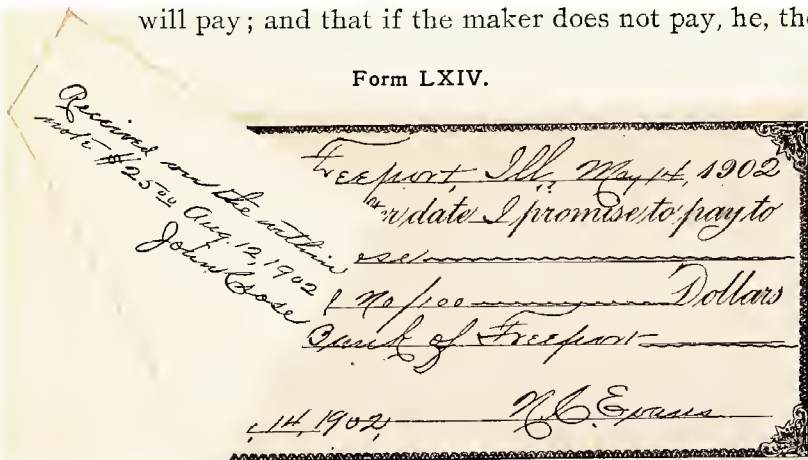 will pay; and that if the maker does not pay, he, the
Form LXIV.
Received on the within
note $25 00 Aug. 12, 1902
John Cose
Freeport, Ill., May 14, 1902
r date I promise to pay to
ose
no/100 Dollars
Bank of Freeport
14, 1902, N. C. Evans